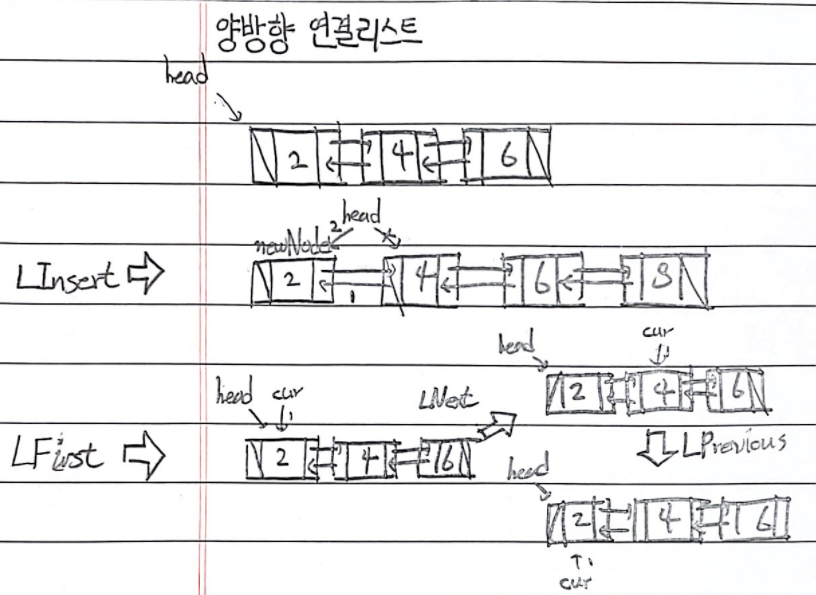 양방향 연결리스트
head
2 4 6
2 head
newNode
LInsert 2 4 6 8
1
head cur
head cur LNext 2 4 6
LFirst 2 4 6 LPrevious
head
2 4 6
cur